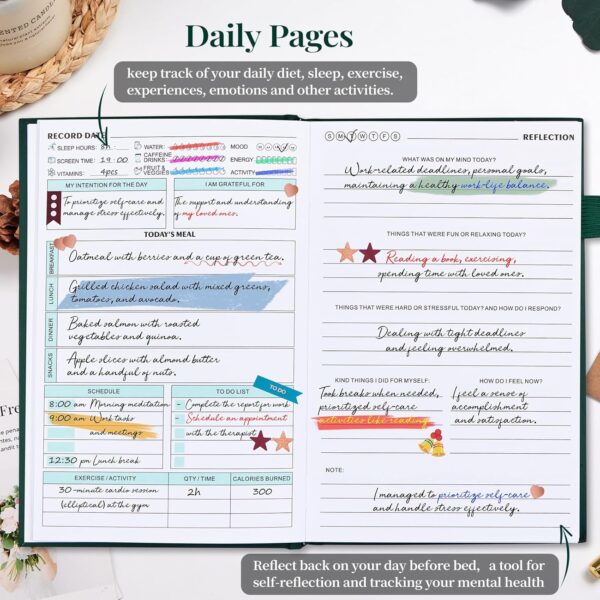 Daily Pages
keep track of your daily diet, sleep, exercise,
experiences, emotions and other activities.
RECORD DATE
SLEEP HOURS:
WATER:
MOOD
SCREEN TIME: 19:00
CAFFEINE
DRINKS:
ENERGY
VITAMINS: 4pcs
FRUIT &
VEGGIES
ACTIVITY
MY INTENTION FOR THE DAY
To prioritize self-care and
manage stress effectively.
I AM GRATEFUL FOR
The support and understanding
of my loved ones.
TODAY'S MEAL
BREAKFAST
Oatmeal with berries and a cup of green tea.
LUNCH
Grilled chicken salad with mixed greens,
tomatoes, and avocado.
DINNER
Baked salmon with roasted
vegetables and quinoa.
SNACKS
Apple slices with almond butter
and a handful of nuts.
SCHEDULE
8:00 am Morning meditation
9:00 am Work tasks
and meetings
12:30 pm Lunch break
TO DO
TO DO LIST
- Complete the report for work
- Schedule an appointment
with the therapist
EXERCISE / ACTIVITY
QTY / TIME
CALORIES BURNED
30-minute cardio session
2h
300
(elliptical) at the gym
S M T W T F S
REFLECTION
WHAT WAS ON MY MIND TODAY?
Work-related deadlines, personal goals,
maintaining a healthy work-life balance.
THINGS THAT WERE FUN OR RELAXING TODAY?
Reading a book, exercising,
spending time with loved ones.
THINGS THAT WERE HARD OR STRESSFUL TODAY? AND HOW DO I RESPOND?
Dealing with tight deadlines
and feeling overwhelmed.
KIND THINGS I DID FOR MYSELF:
Took breaks when needed,
prioritized self-care
activities like reading.
HOW DO I FEEL NOW?
I feel a sense of
accomplishment
and satisfaction.
NOTE:
I managed to prioritize self-care
and handle stress effectively.
Reflect back on your day before bed, a tool for
self-reflection and tracking your mental health